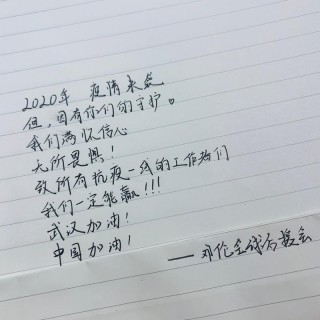 2020年 疫情来袭
但,因有你们的守护。
我们满怀信心
无所畏惧!
致所有抗疫一线的工作者们
我们一定能赢!!!
武汉加油!
中国加油!
——邓伦全球后援会